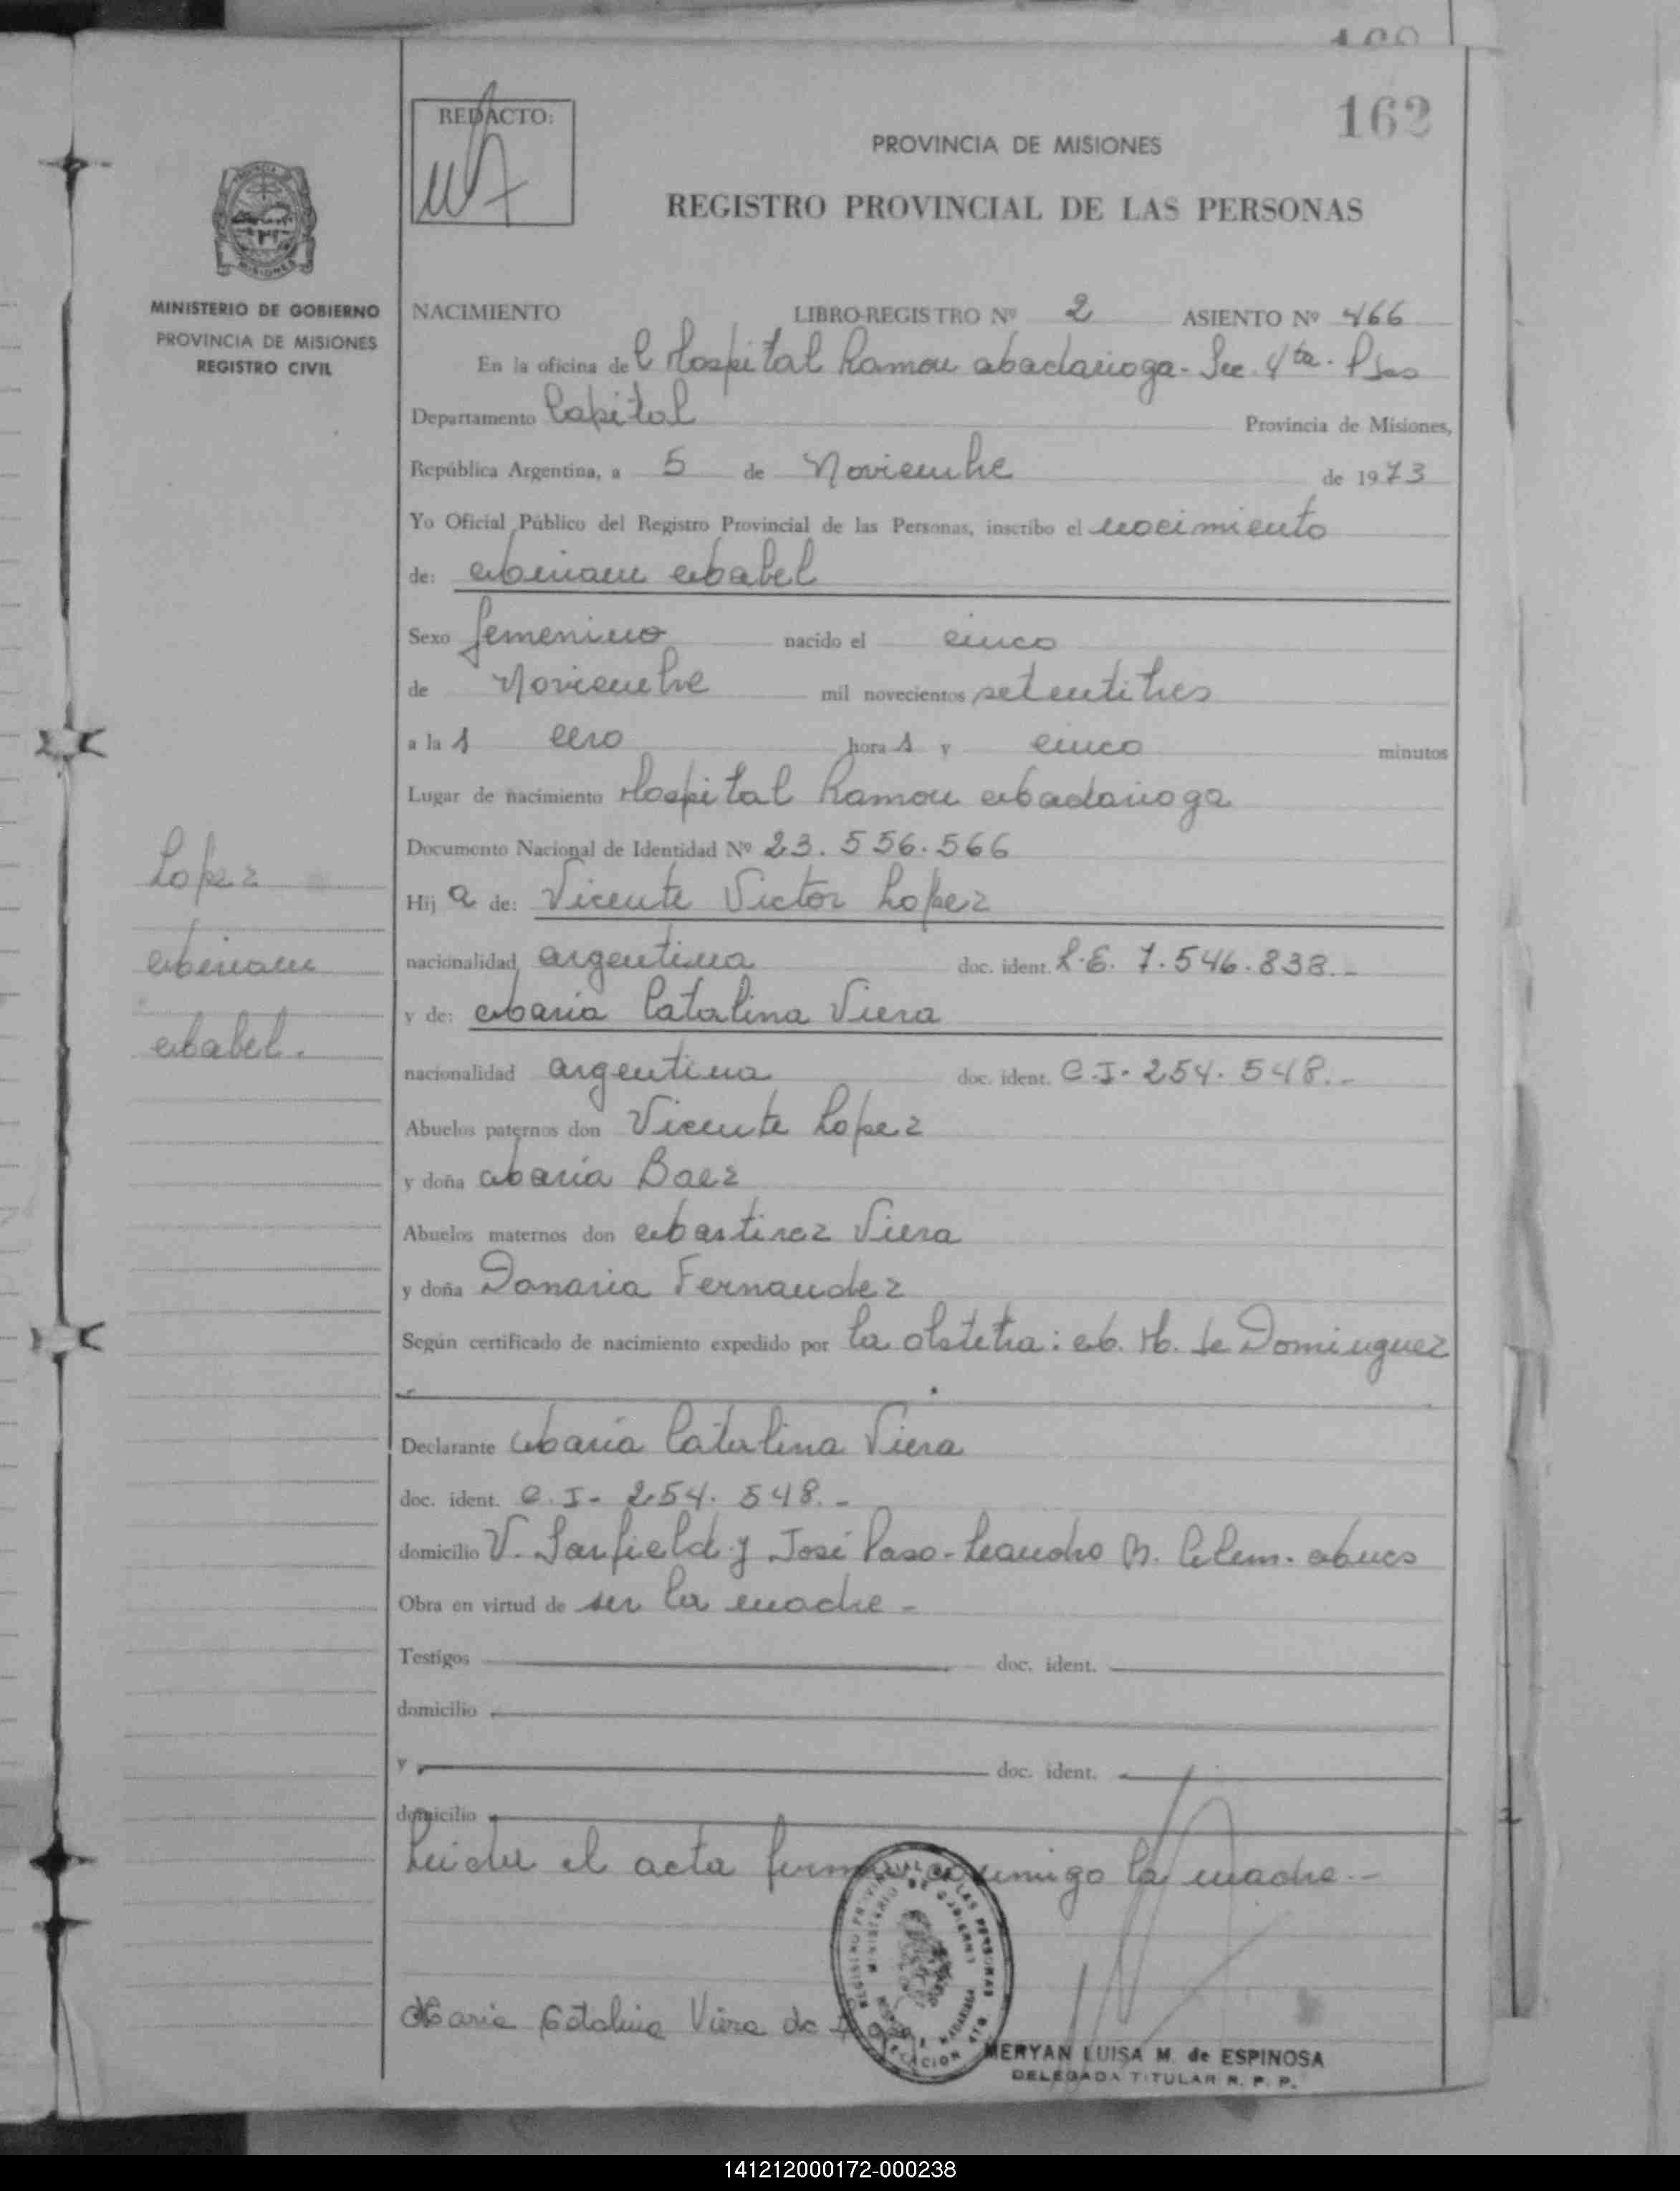 162
REDACTO:
PROVINCIA DE MISIONES
REGISTRO PROVINCIAL DE LAS PERSONAS
MINISTERIO DE GOBIERNO
PROVINCIA DE MISIONES
REGISTRO CIVIL
NACIMIENTO LIBRO-REGISTRO Nº 2 ASIENTO Nº 466
En la oficina del Hospital Ramon Madariaga - Sec. 4ta. Psas
Departamento Capital Provincia de Misiones,
República Argentina, a 5 de Noviembre de 1973
Yo Oficial Público del Registro Provincial de las Personas, inscribo el nacimiento
de: Miriam Mabel
Sexo femenino nacido el cinco
de Noviembre mil novecientos setentitres
a la s cero hora s y cinco minutos
Lugar de nacimiento Hospital Ramon Madariaga
Documento Nacional de Identidad Nº 23.556.566
Hij a de: Vicente Victor Lopez
nacionalidad argentina doc. ident. L.E. 7.546.838.-
y de: Maria Catalina Viera
nacionalidad argentina doc. ident. C.I. 254.548.-
Abuelos paternos don Vicente Lopez
y doña Maria Baez
Abuelos maternos don Martirez Viera
y doña Damaria Fernandez
Según certificado de nacimiento expedido por la obstetra: M. H. de Dominguez
Declarante Maria Catalina Viera
doc. ident. C.I- 254.548.-
domicilio V. Sarfield y José Paso - Leandro N. Alem. Mnes
Obra en virtud de ser la madre -
Testigos doc. ident.
domicilio
y doc. ident.
domicilio
Leida el acta firma conmigo la madre.-
Lopez
Miriam
Mabel.
Maria Catalina Viera de
REGISTRO PROVINCIAL DE LAS PERSONAS
MINISTERIO DE GOBIERNO
MERYAN LUISA M. de ESPINOSA
DELEGADA TITULAR R. P. P.
141212000172-000238